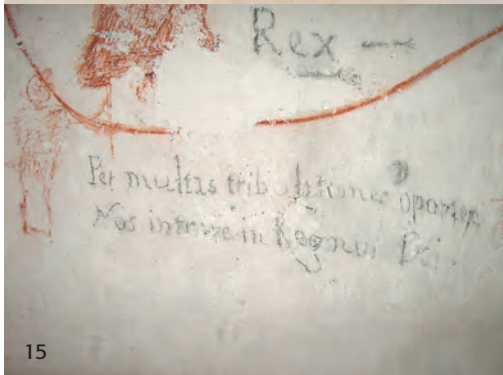 Rex —
Per multas tribulationes oportet
Nos intrare in Regnum Dei.
15